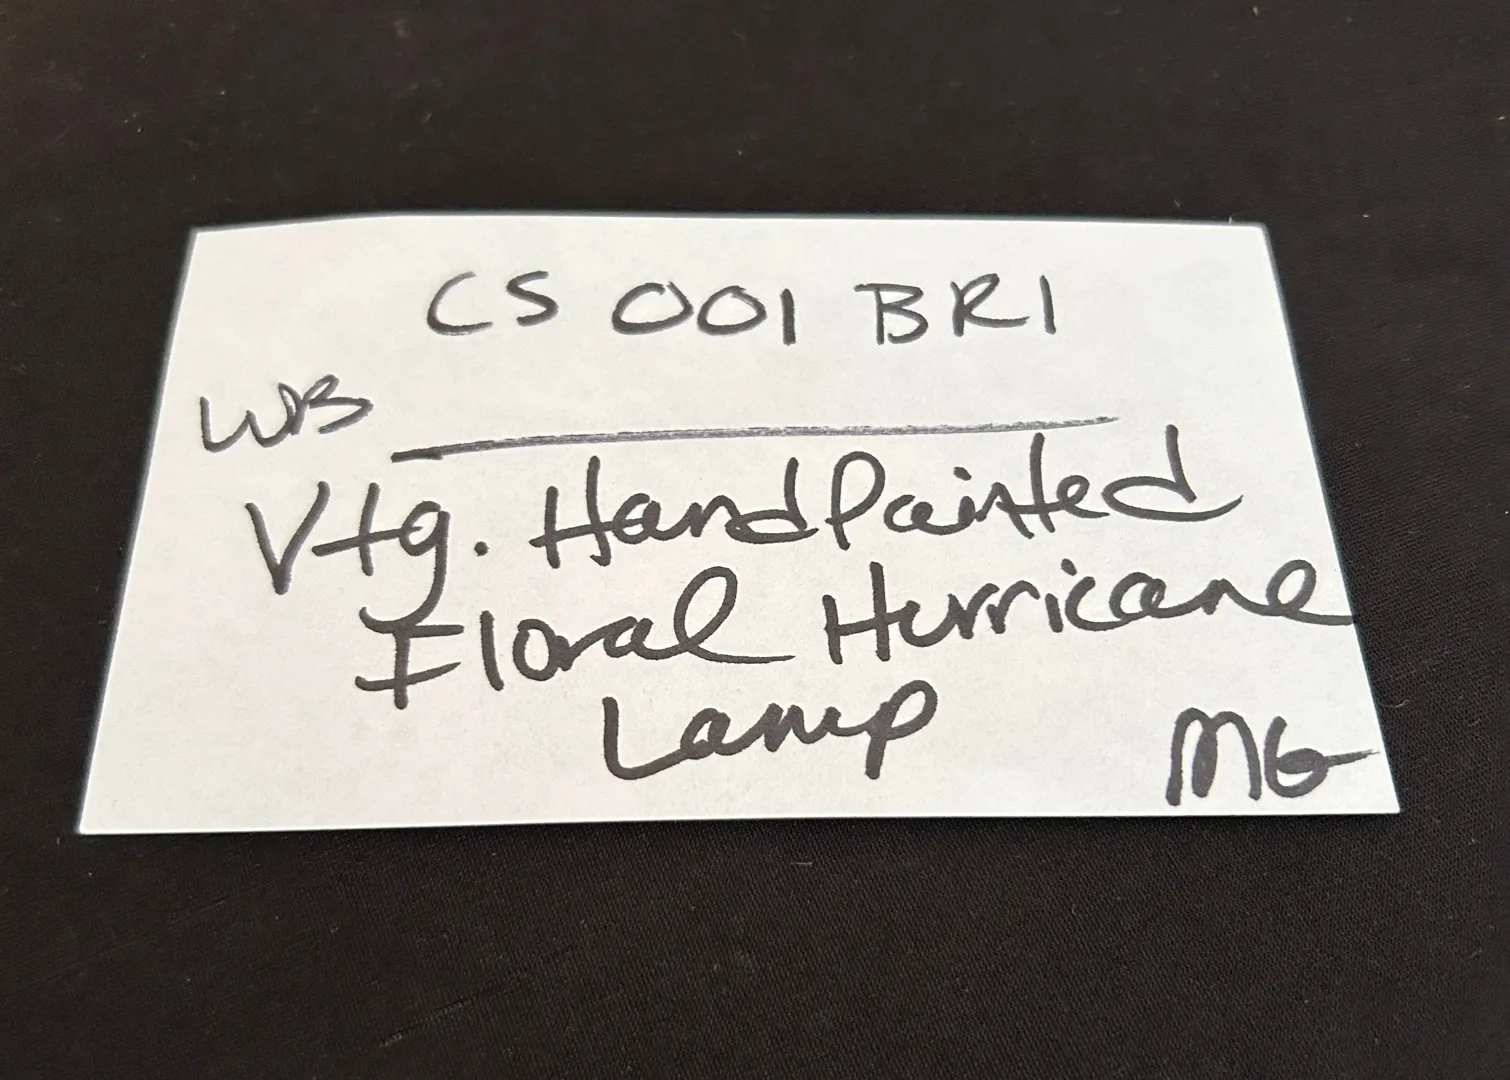 CS 001 BR1
WB
Vtg. HandPainted
Floral Hurricane
Lamp
MG